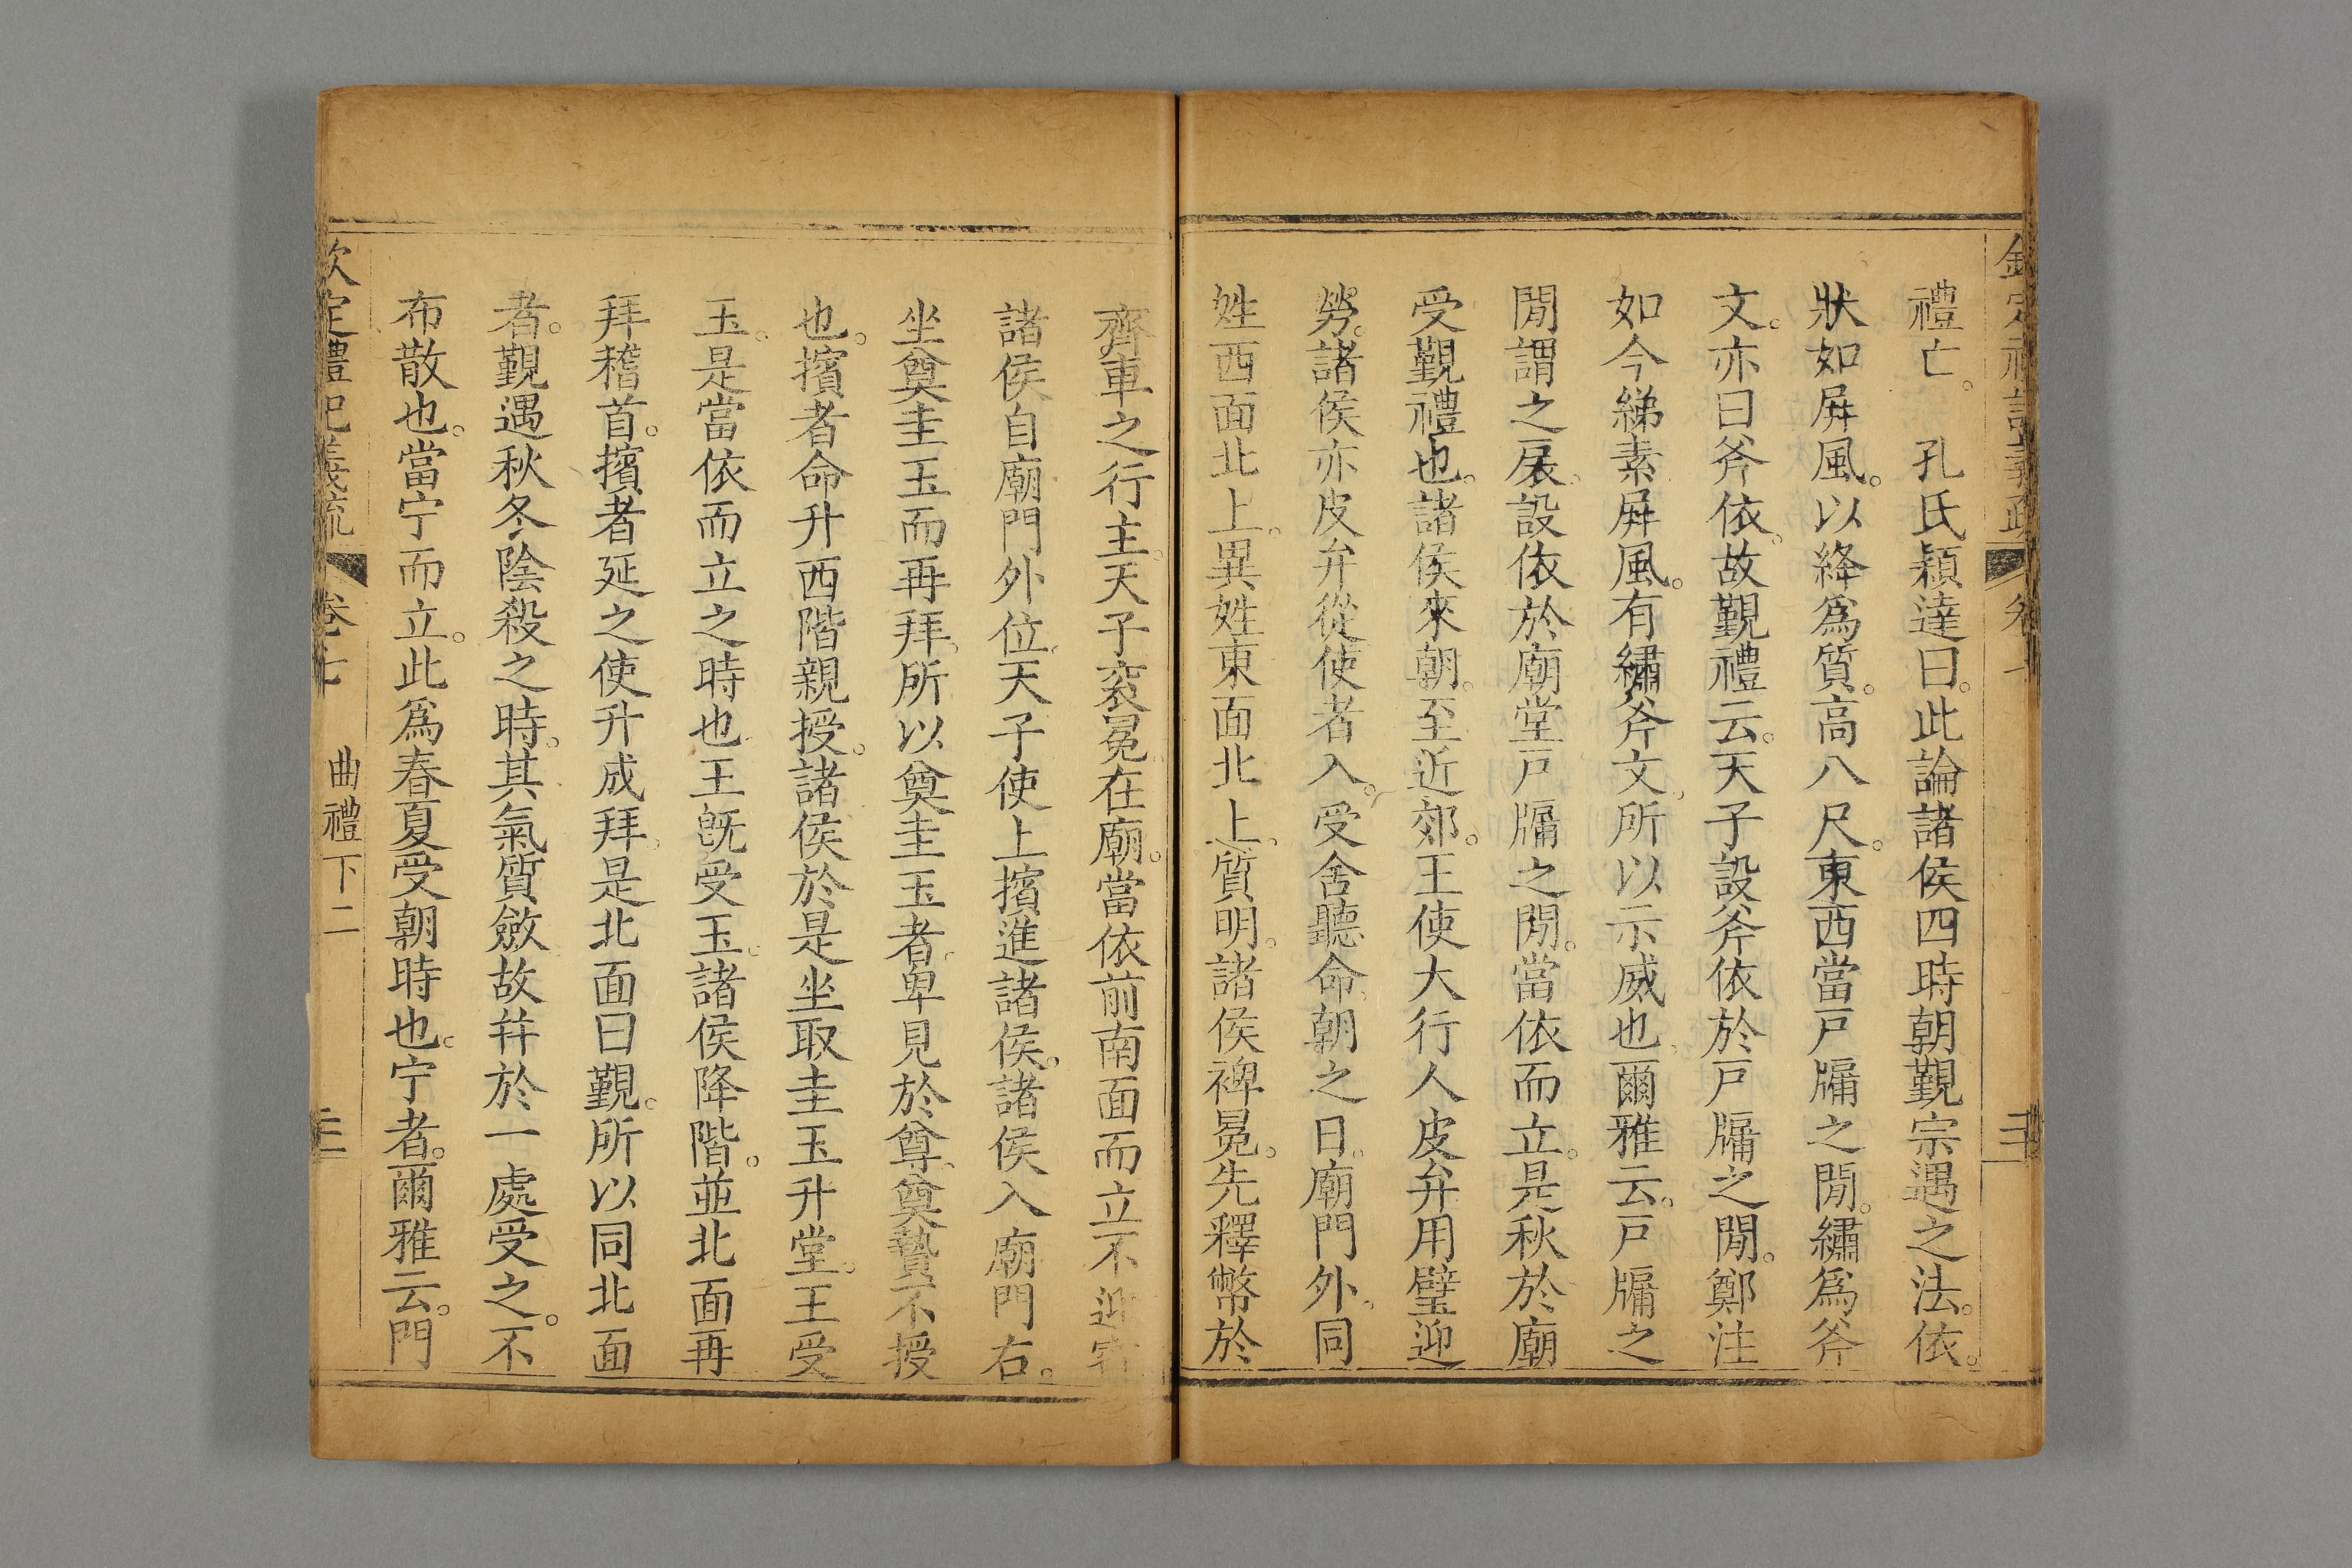 禮亡。　孔氏穎達曰。此論諸侯四時朝覲宗遇之法。依。
狀如屛風。以絳爲質。高八尺。東西當戸牖之閒。繡爲斧
文。亦曰斧依。故覲禮云。天子設斧依於戸牖之閒。鄭注
如今綈素屛風。有繡斧文。所以示威也。爾雅云。戸牖之
閒謂之扆。設依於廟堂戸牖之閒。當依而立。是秋於廟
受覲禮也。諸侯來朝。至近郊。王使大行人皮弁用璧迎
勞。諸侯亦皮弁從使者入。受舍聽命。朝之日。廟門外。同
姓西面北上。異姓東面北上。質明。諸侯裨冕。先釋幣於
齊車之行主。天子衮冕。在廟。當依前南面而立不迎賓
諸侯自廟門外位。天子使上擯進諸侯。諸侯入廟門右。
坐奠圭玉而再拜。所以奠圭玉者。卑見於尊。奠贄不授
也。擯者命升西階親授。諸侯於是坐取圭玉升堂。王受
玉。是當依而立之時也。王旣受玉。諸侯降階。並北面再
拜稽首。擯者延之使升成拜。是北面曰覲。所以同北面
者。覲遇秋冬陰殺之時。其氣質斂故幷於一處受之。不
布散也。當宁而立。此爲春夏受朝時也。宁者。爾雅云。門
欽定禮記義疏　卷七　曲禮下二